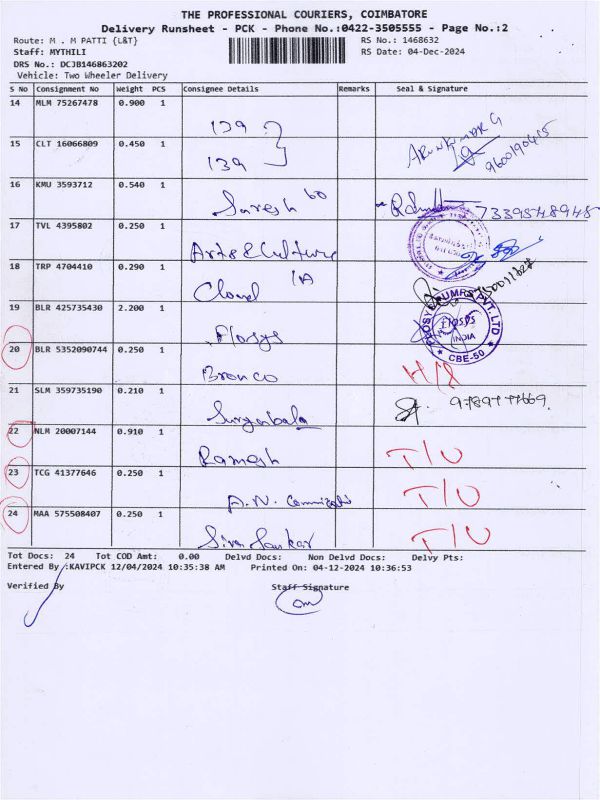 THE PROFESSIONAL COURIERS, COIMBATORE
Delivery Runsheet - PCK - Phone No.:0422-3505555 - Page No.:2
Route: M . M PATTI {L&T} RS No.: 1468632
Staff: MYTHILI RS Date: 04-Dec-2024
DRS No.: DCJB146863202
Vehicle: Two Wheeler Delivery
S No Consignment No Weight PCS Consignee Details Remarks Seal & Signature
14 MLM 75267478 0.900 1 139
15 CLT 16066809 0.450 1 139 ARUNKUMAR G
16 KMU 3593712 0.540 1 Suresh 60 7339548948
17 TVL 4395802 0.250 1 Arts & Culture
18 TRP 4704410 0.290 1 Cloud 1A
19 BLR 425735430 2.200 1 Flosys PVT. LTD INDIA CBE-50
20 BLR 5352090744 0.250 1 Bronco
21 SLM 359735190 0.210 1 Suryabala
22 NLM 20007144 0.910 1 Ramesh T/U
23 TCG 41377646 0.250 1 A.N. T/U
24 MAA 575508407 0.250 1 Siva Sankar T/U
Tot Docs: 24 Tot COD Amt: 0.00 Delvd Docs: Non Delvd Docs: Delvy Pts:
Entered By :KAVIPCK 12/04/2024 10:35:38 AM Printed On: 04-12-2024 10:36:53
Verified By Staff Signature